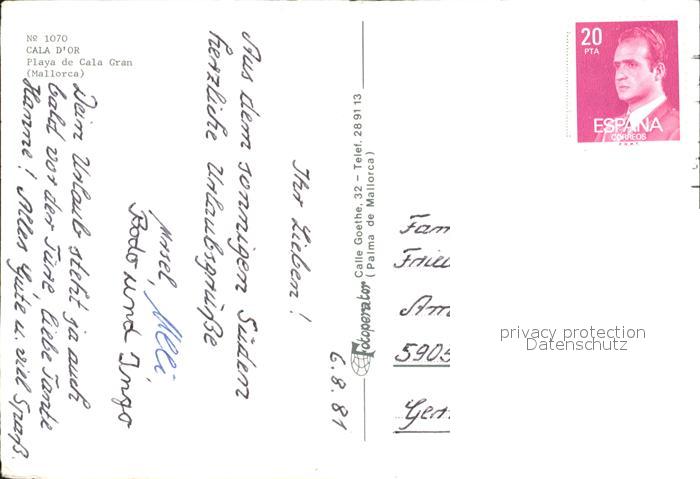 Nº 1070
CALA D'OR
Playa de Cala Gran
(Mallorca)
6.8.81
Ihr Lieben!
Aus dem sonnigen Süden
herzliche Urlaubsgrüße
Ursel, Meli,
Bodo und Ingo
Dein Urlaub steht ja auch
bald vor der Türe, liebe Tante
Hanne! Alles Gute u. viel Spaß.
Fotoperator Calle Goethe, 32 - Telef. 28 91 13
(Palma de Mallorca)
20
PTA
ESPAÑA
CORREOS
Fam
Fried
Am
5905
privacy protection
Datenschutz